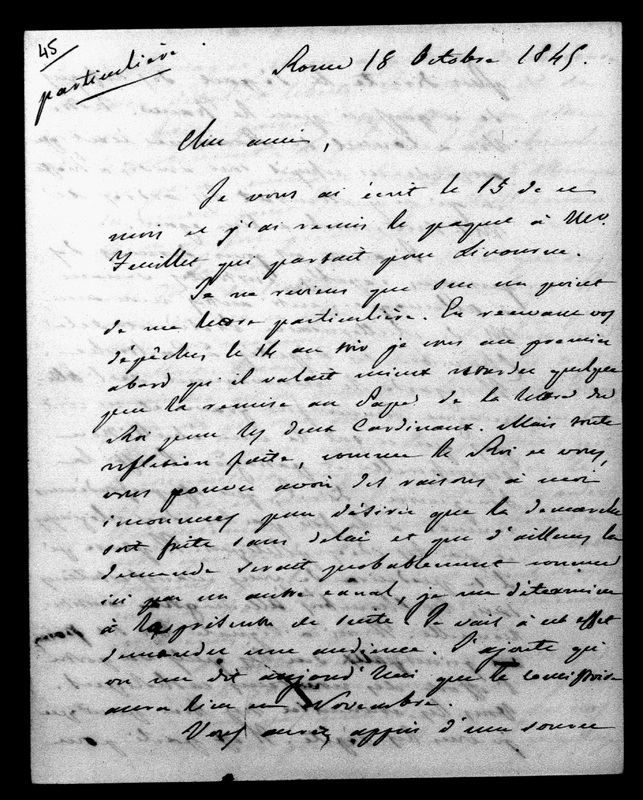 45
particulière
Rome 18 Octobre 1845.
Cher ami,
Je vous ai écrit le 15 de ce
mois et j'ai remis le paquet à Mr.
Feuillet qui partait pour Livourne.
Je ne reviens que sur un point
de ma lettre particulière. En recevant vos
dépêches le 14 au soir je crus au premier
abord qu'il valait mieux retarder quelque
peu la remise au Pape de la lettre du
Roi pour les deux Cardinaux. Mais toute
réflexion faite, comme le Roi et vous,
vous pouvez avoir des raisons à moi
inconnues pour désirer que la démarche
soit faite sans délai et que d'ailleurs la
demande serait probablement connue
ici par un autre canal, je me détermine
à la présenter de suite. Je vais à cet effet
demander une audience. J'ajoute qu'
on me dit aujourd'hui que le consistoire
aura lieu en Novembre.
Vous aurez appris d'une source